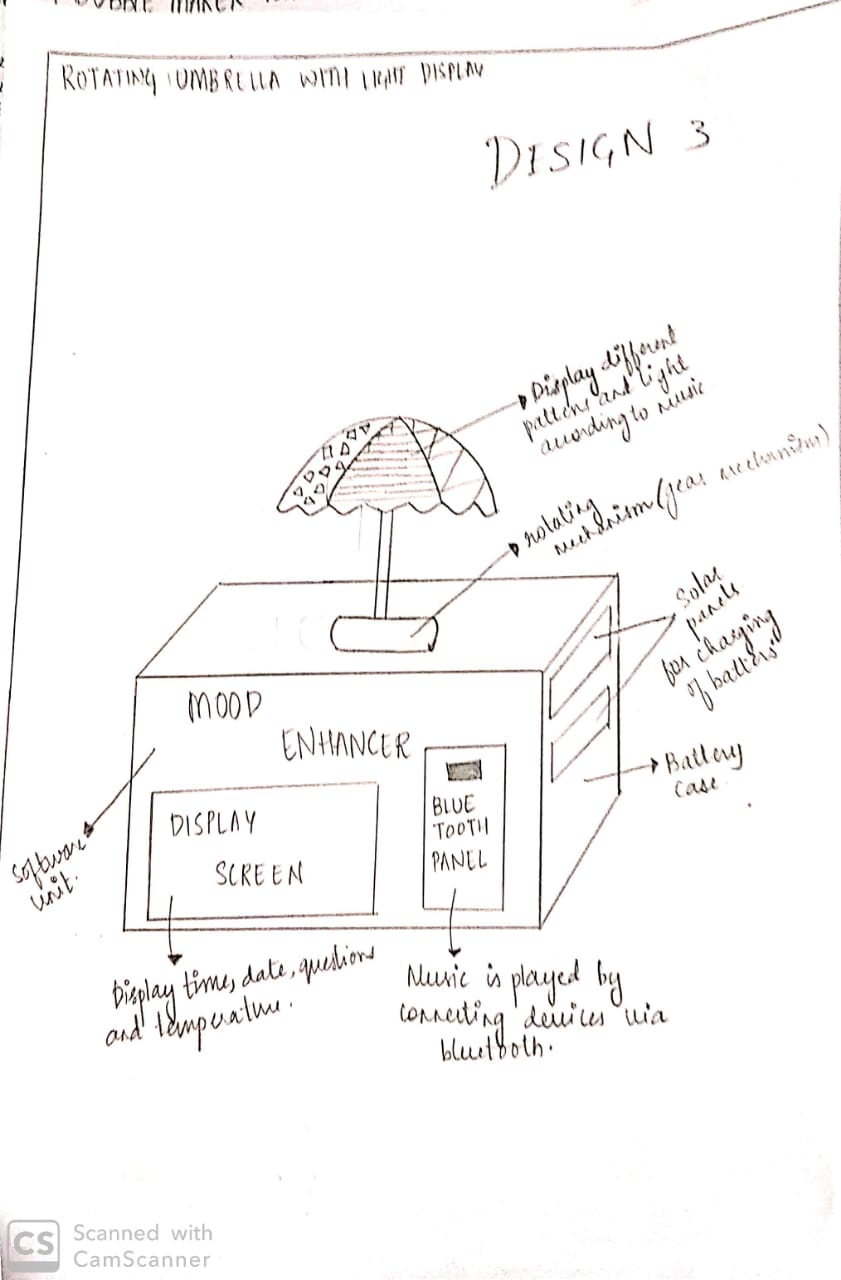 MAKER
ROTATING UMBRELLA WITH LIGHT DISPLAY
DESIGN 3
Display different
patterns and light
according to music
rotating
mechanism (gear mechanism)
Solar
panels
for charging
of batteries
MOOD
ENHANCER
Battery
case.
BLUE
TOOTH
PANEL
DISPLAY
SCREEN
Software
unit.
Display time, date, questions
and temperature.
Music is played by
connecting devices via
bluetooth.
CS
Scanned with
CamScanner